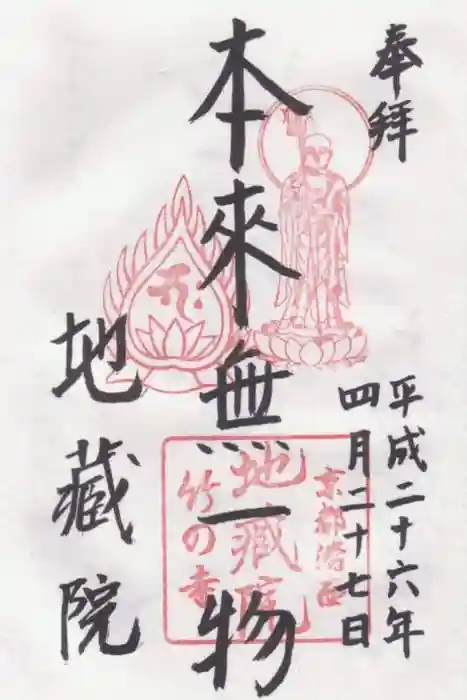 奉拝
平成二十六年
四月二十七日
本來無一物
地藏院
京都洛西
地藏院
竹の寺